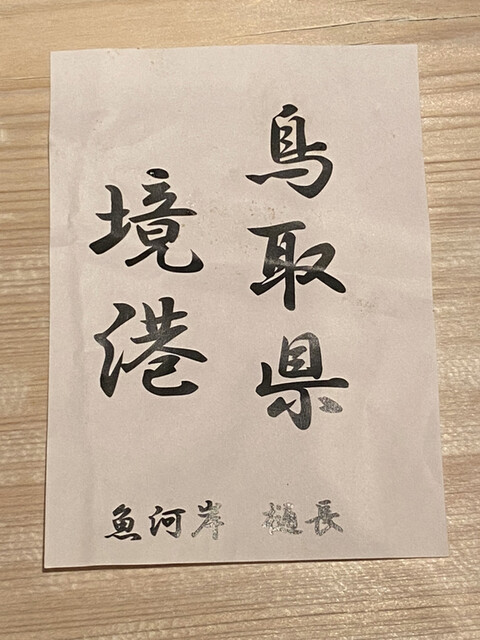 鳥取県
境港
魚河岸 樋長